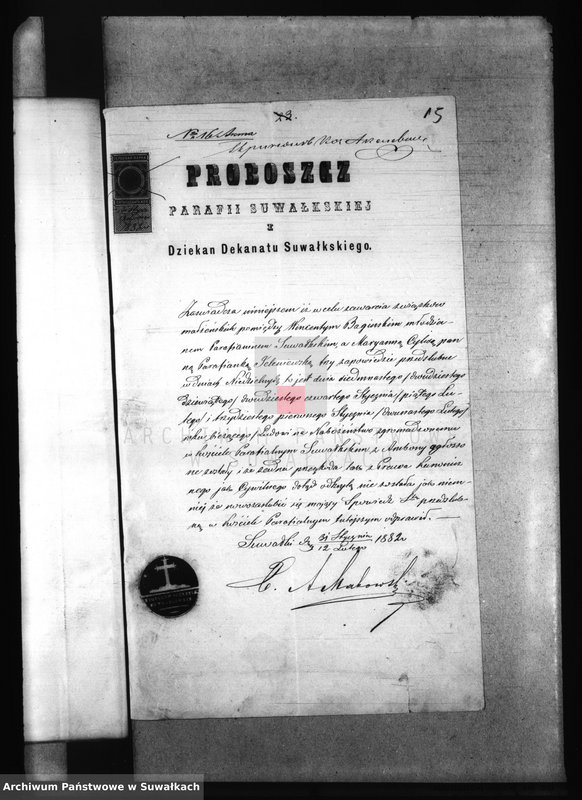 15
No 16
PROBOSZCZ
PARAFII SUWAŁKSKIEJ
I
Dziekan Dekanatu Suwałkskiego.
Zaświadcza niniejszem iż w celu zawarcia związków
małżeńskich pomiędzy Wincentym Bagińskim młodzia-
nem Parafianinem Suwałkskim a Maryanną pan-
ną Parafianką trzy zapowiedzie przedślubne
w dniach Niedzielnych to jest dnia siedmnastego / dwudziestego
dziewiątego / dwudziestego czwartego Stycznia / piątego Lu-
tego / i trzydziestego pierwszego Stycznia / dwunastego Lutego /
roku bieżącego / Ludowi na Nabożeństwo zgromadzonemu
w kościele Parafialnym Suwałkskim z Ambony ogłoszo-
ne zostały i że żadna przeszkoda tak z prawa kanonicz-
nego jak Cywilnego dotąd odkrytą nie została jak niem-
niej że nowozaślubić się mający Spowiedź Stą przedślub-
ną w kościele Parafialnym tutejszym odprawił.
Suwałki d. 31 Stycznia / 12 Lutego 1882 r.
Archiwum Państwowe w Suwałkach